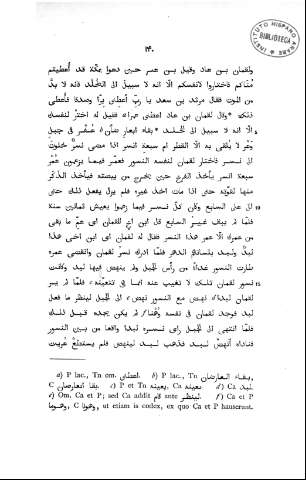 ٢٤٠
INSTITUTO HISPANO ARABE
BIBLIOTECA
ولقمان بن عاد وقيل بن عمر حين دعوا بمكّة قد أُعطيتم
مُناكم فاختاروا لانفسكم الا انه لا سبيل الى الخُلد فانه لا بدّ
من الموت فقال مرثد بن سعد يا ربّ أَعطنى برًّا وصدقا فأُعطى
ذلك وقال لقمان بن عاد اعطنى عمرا فقيل له اختَرْ لنفسك
الّا انه لا سبيل الى الخُلد بقاء أبعار ضأن عُفْر فى جبل
وَعْر لا يلقى به الّا القطر ام سبعة انسر اذا مضى نسرٌ خلوتَ
الى نسر فاختار لقمان لنفسه النسور فعمّر فيما يزعمون عُمُر
سبعة انسر يأخذ الفرخ حين يخرج من بيضته فيأخذ الذكر
منها لقوّته حتى اذا مات اخذ غيره فلم يزل يفعل ذلك حتى
اتى على السابع وكان كلّ نسر فيما زعموا يعيش ثمانين سنة
فلمّا لم يبق غير السابع قال ابن اخ للقمان اى عمّ ما بقى
من عمرك الّا عمر هذا النسر فقال له لقمان اى ابن اخى هذا
لُبَد ولُبَد بلسانهم الدهر فلمّا ادرك نسر لقمان وانقضى عمره
طارت النسور غداةً من رأس الجبل ولم ينهض فيها لبد وكانت
نسور لقمان تلك لا تغيب عنه انما هى بعينه فلمّا لم ير
لقمان لبدا نهض مع النسور نهض الى الجبل لينظر ما فعل
لبد فوجد لقمان فى نفسه وَهْنا لم يكن يجده قبل ذلك
فلمّا انتهى الى الجبل رأى نسره لبدا واقعا من بين النسور
فناداه أنهَضْ لبد فذهب لبد لينهض فلم يستطع عريت
a) P lac., Tn om. اعطنى. b) P lac., Tn
C C) P et Tn بعينه, Ca d) Ca لبد.
e) Om. Ca et P; sed Ca addit قام ante لينظر. f) Ca et P
وهوما, C وهوا, ut etiam is codex, ex quo Ca et P hauserunt.